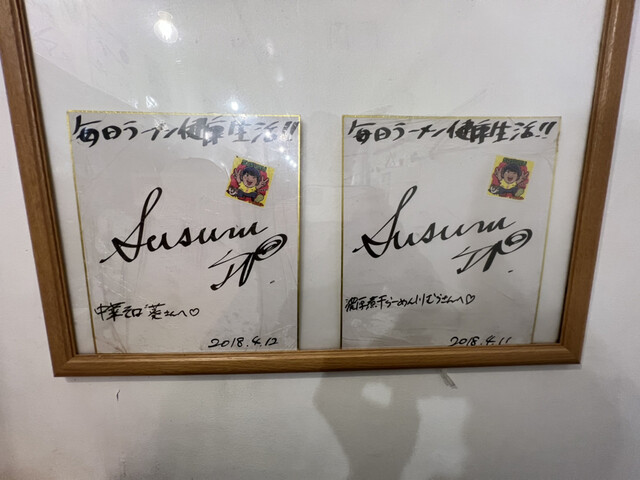 毎日ラーメン健康生活!!
Susuru
TV.
中華そば 葵さんへ♡
2018.4.12
毎日ラーメン健康生活!!
Susuru
TV.
煮干らーめん川むらさんへ♡
2018.4.11